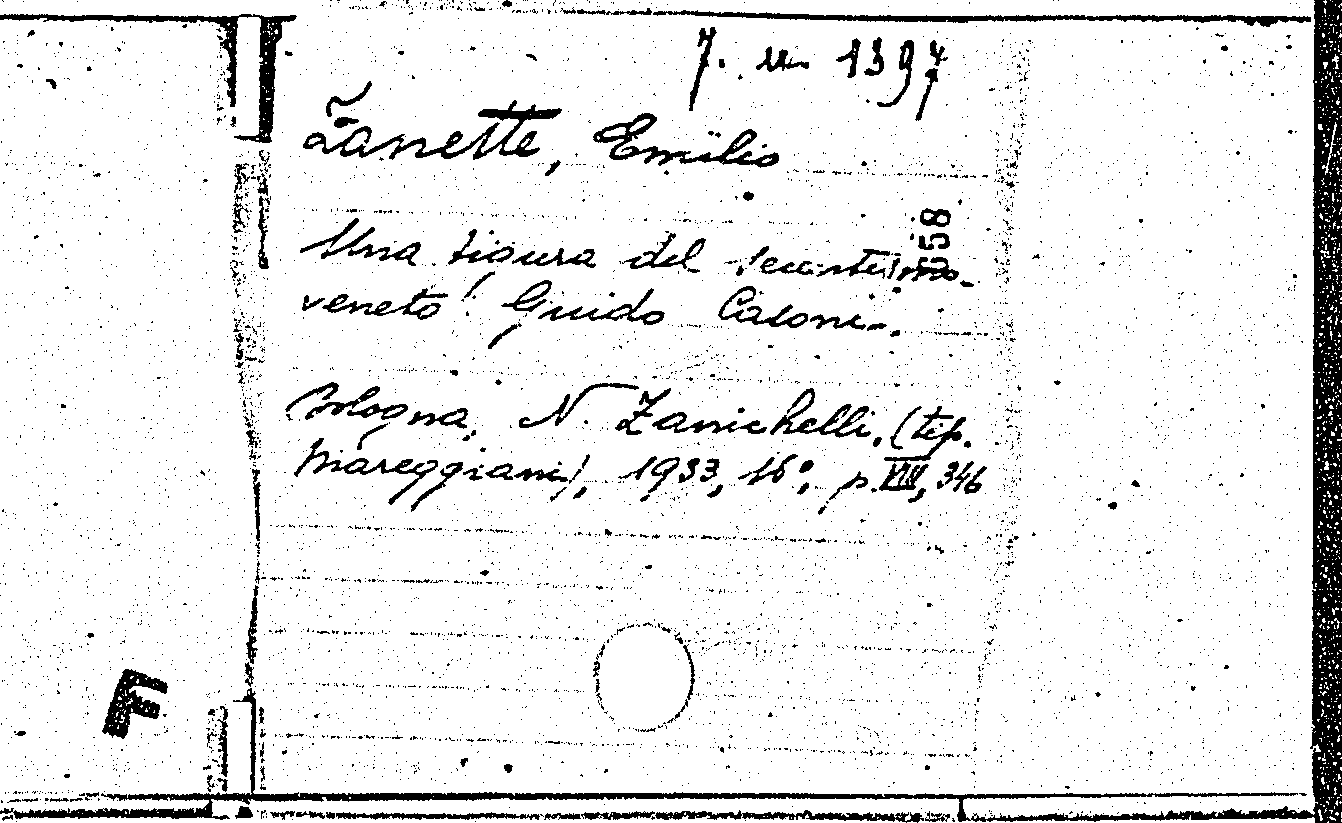 7. u 1397
Zanette, Emilio
558
Una figura del secentismo
veneto: Guido Casoni.
Bologna, N. Zanichelli, (tip.
Mareggiani), 1933, 16°, p. XIV, 346
F